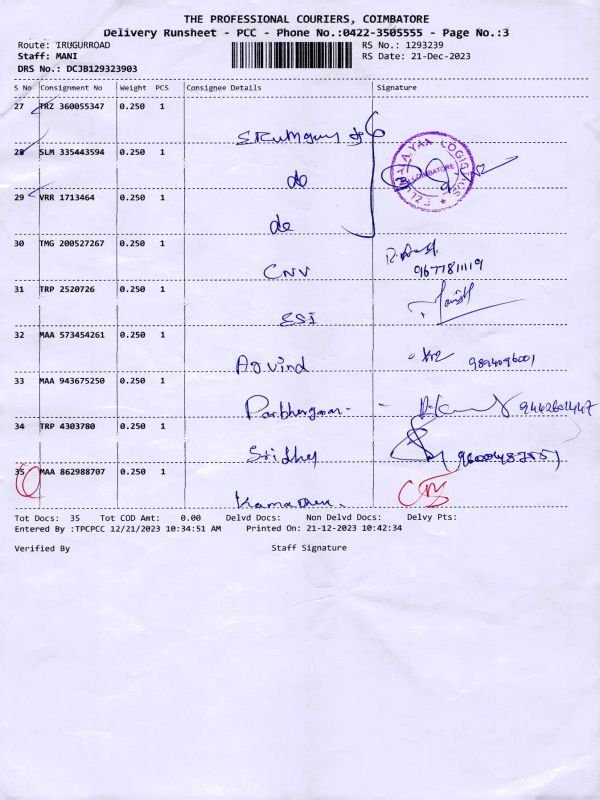 THE PROFESSIONAL COURIERS, COIMBATORE
Delivery Runsheet - PCC - Phone No.:0422-3505555 - Page No.:3
Route: IRUGURROAD RS No.: 1293239
Staff: MANI RS Date: 21-Dec-2023
DRS No.: DCJB129323903
S No Consignment No Weight PCS Consignee Details Signature
27 TRZ 360055347 0.250 1
28 SLM 335443594 0.250 1
do
29 VRR 1713464 0.250 1
do
30 TMG 200527267 0.250 1
CNV 9677811119
31 TRP 2520726 0.250 1
ESI
32 MAA 573454261 0.250 1
Arvind 9894096001
33 MAA 943675250 0.250 1
34 TRP 4303780 0.250 1
Sridhey
35 MAA 862988707 0.250 1
Tot Docs: 35 Tot COD Amt: 0.00 Delvd Docs: Non Delvd Docs: Delvy Pts:
Entered By :TPCPCC 12/21/2023 10:34:51 AM Printed On: 21-12-2023 10:42:34
Verified By Staff Signature